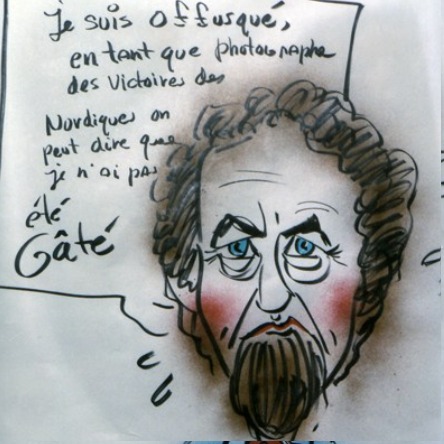 Je suis offusqué,
en tant que photographe
des Victoires des
Nordiques on
peut dire que
je n'ai pas
été
Gâté